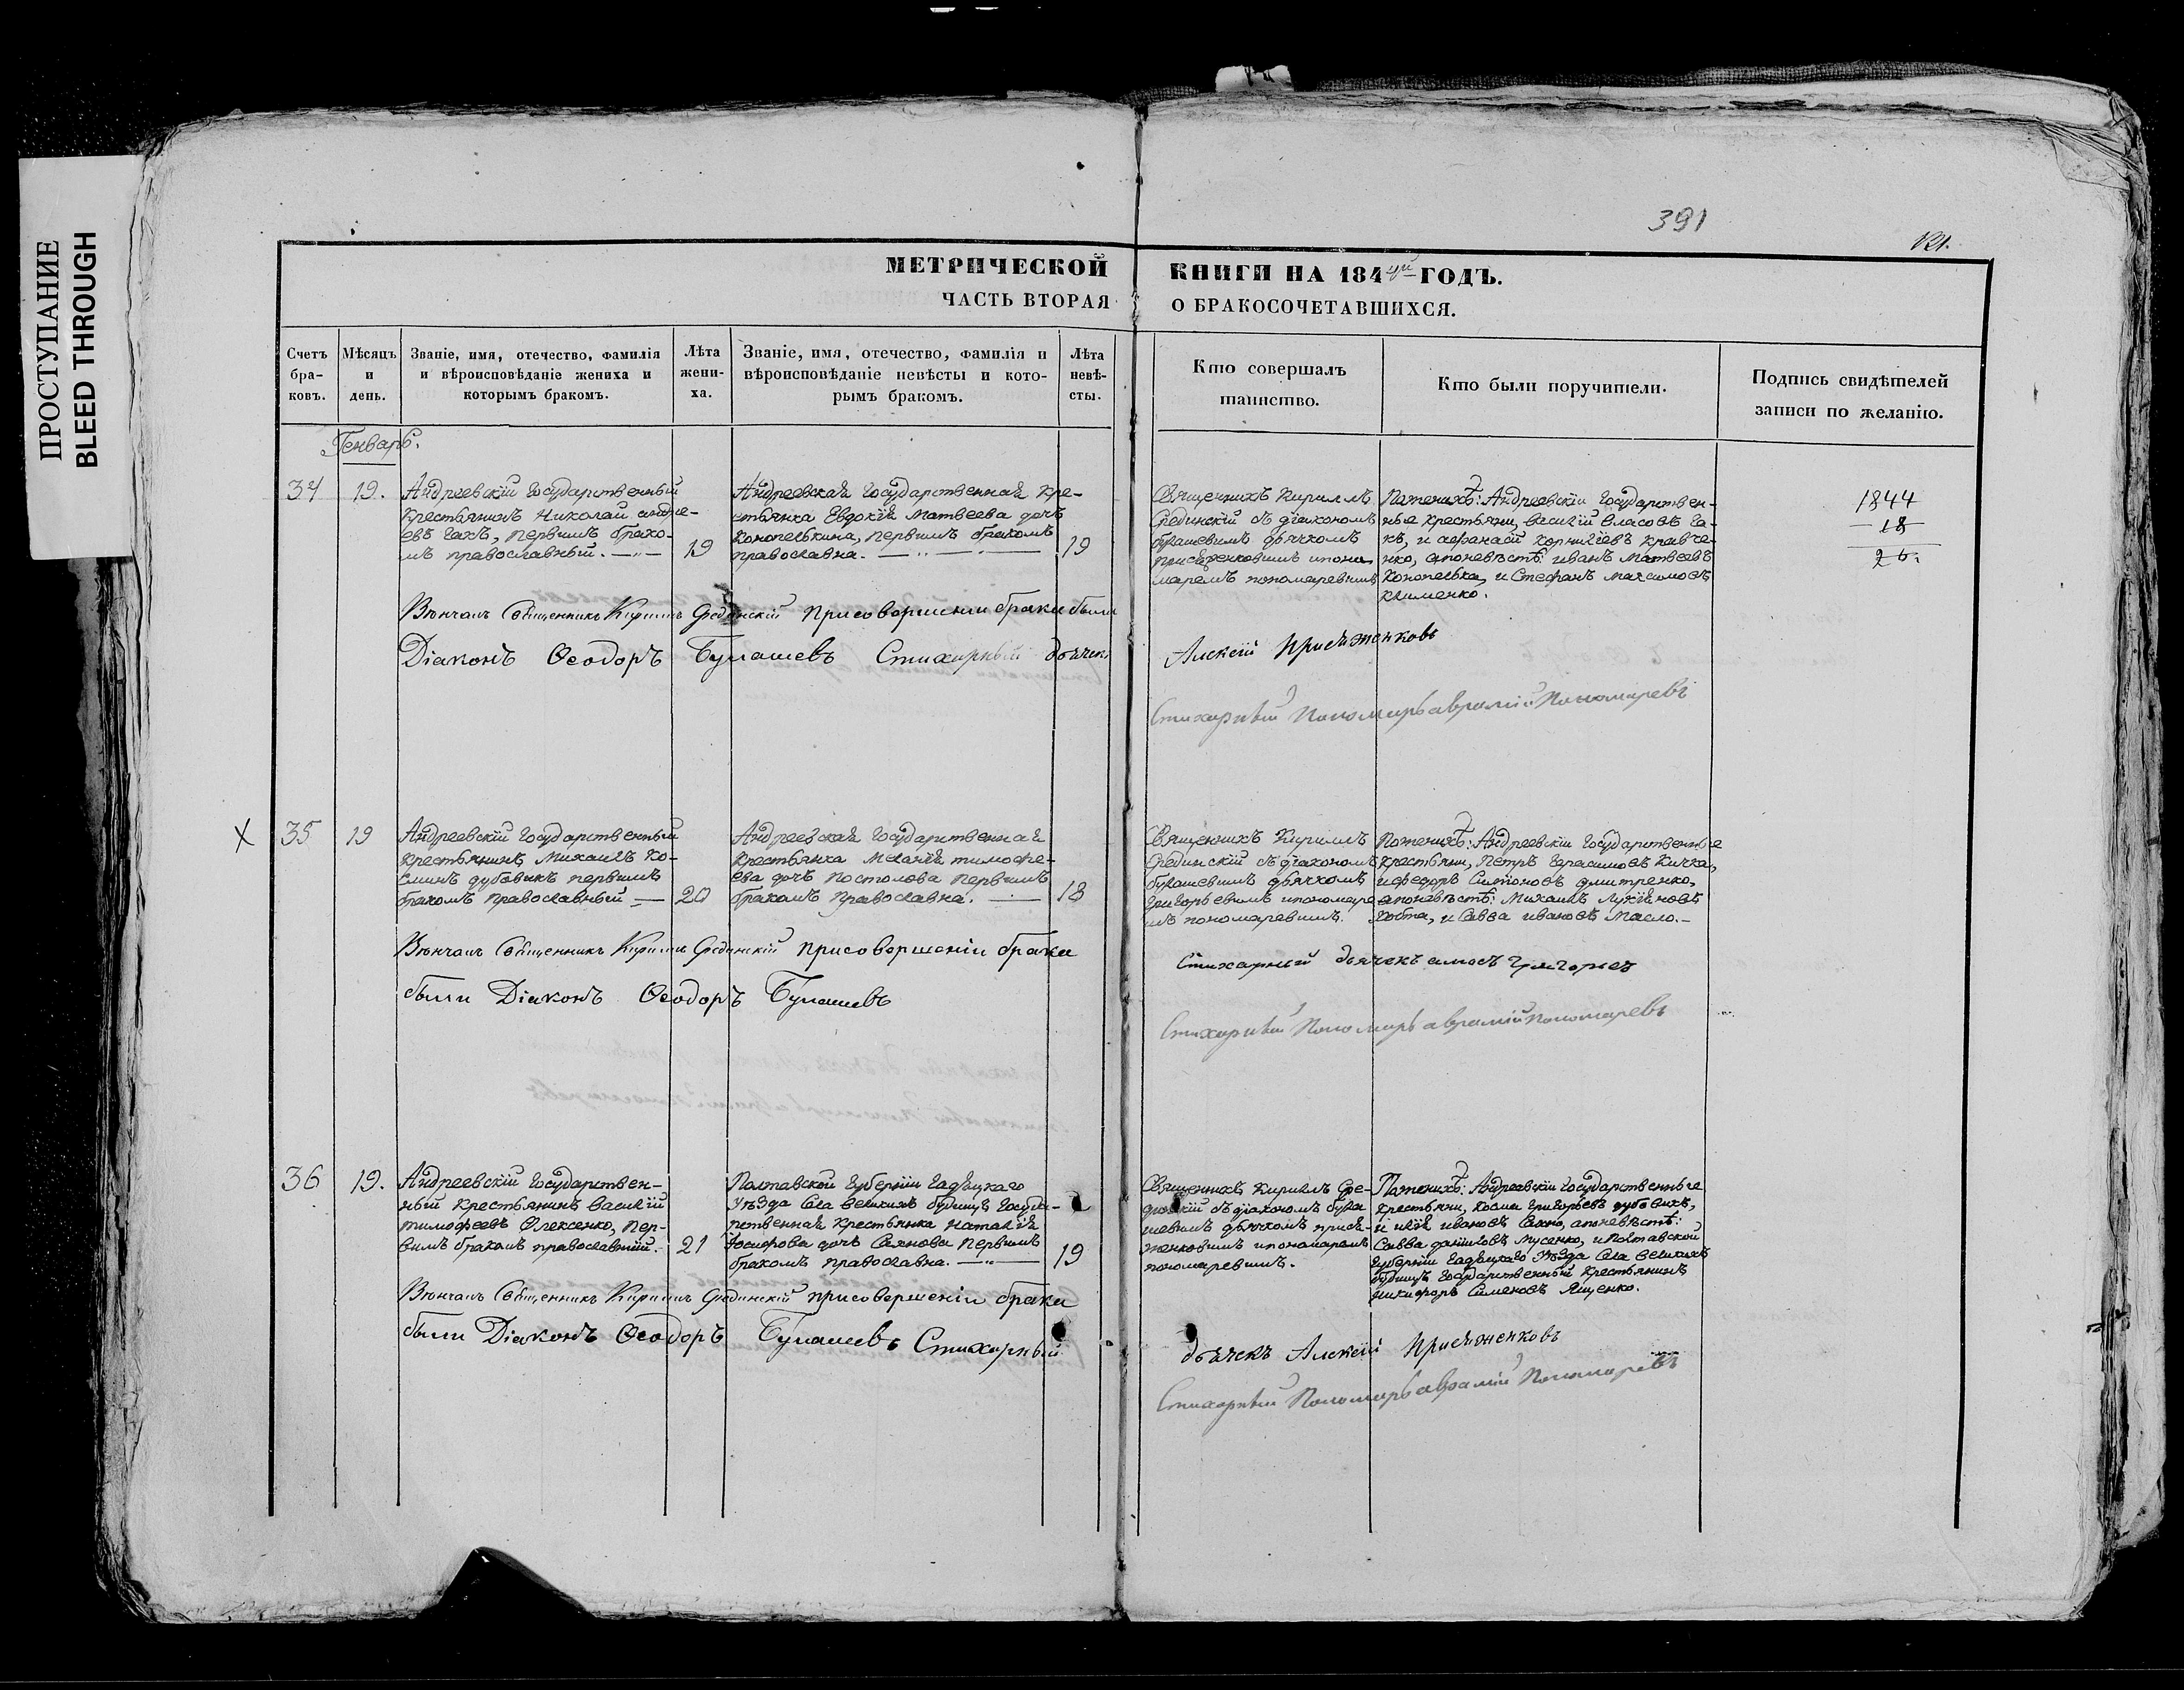 ПРОСТУПАНИЕ
BLEED THROUGH
391
121.
МЕТРИЧЕСКОЙ КНИГИ НА 1844й ГОДЪ.
ЧАСТЬ ВТОРАЯ О БРАКОСОЧЕТАВШИХСЯ.
Счетъ бра- ковъ.
Мѣсяцъ и день.
Званіе, имя, отечество, фамилія и вѣроисповѣданіе жениха и которымъ бракомъ.
Лѣта жени- ха.
Званіе, имя, отечество, фамилія и вѣроисповѣданіе невѣсты и кото- рымъ бракомъ.
Лѣта невѣ- сты.
Кто совершалъ таинство.
Кто были поручители.
Подпись свидѣтелей записи по желанію.
Генварь.
34
19.
Андреевскій Государственный
крестьянинъ Николай андре-
евъ Гахъ, первымъ брако-
мъ православный.
19
Андреевская Государственная кре-
стьянка Евдокія Матвеева дочь
Конопелькина, первымъ бракомъ
православна.
19
Священникъ Кириллъ
Срединскій съ діакономъ
Бугашевымъ дьячкомъ
присяженковымъ и поно-
маремъ пономаревымъ
Поженихѣ: Андреевскіи Государствен-
ные крестьяни, василій власовъ Га-
хъ, и афанасій Корніліевъ Кравче-
нко, апоневѣстѣ: иванъ Матвеевъ
Конопелька, и Стефанъ максимовъ
Клименко.
1844
18
26.
Вѣнчалъ Священникъ Кириллъ Срединскій присовершении брака были
Діаконъ Ѳеодоръ Бугашевъ Стихарный дьячекъ
Алексій Присяженковъ
Стихарный Пономарь аврамій Пономаревъ
35
19
Андреевскій Государственный
крестьянинъ Михаилъ Ко-
сминъ дубовыкъ первымъ
бракомъ православный
20
Андреевская Государственная
крестьянка Меланія тимофе-
ева дочь Постолова первымъ
бракомъ православна.
18
Священникъ Кириллъ
Срединскій съ діакономъ
бугашевымъ дьячкомъ
Григорьевымъ и пономаре
мъ пономаревымъ.
Поженихѣ: Андреевскіи Государственные
крестьяни, Петръ Герасимовъ Кичка,
и федоръ Симоновъ дмитренко,
апоневѣстѣ: Михаилъ Лукіяновъ
Ковта, и Савва ивановъ Масло.
Вѣнчалъ Священникъ Кириллъ Срединскій присовершеніи брака
были Діаконъ Ѳеодоръ Бугашевъ
Стихарный дьячекъ амосъ Григорьевъ
Стихарный Пономарь аврамій пономаревъ
36
19.
Андреевскій Государствен-
ный крестьянинъ василій
тимофеевъ Олексенко, пер-
вымъ бракомъ православный.
21
Полтавской Губерніи Гадяцкаго
уѣзда Села великихъ будищъ Госуда-
рственная крестьянка Наталія
Іосифова дочь Сахнова первымъ
бракомъ православна.
19
Священникъ Кириллъ Сре-
динскій съ діакономъ буга
шевымъ дьячкомъ прися-
женковымъ и пономаремъ
пономаревымъ.
Поженихѣ: Андреевскіи Государственные
крестьяни, Косма Григорьевъ дубовикъ,
и илія ивановъ Сахно, апоневѣстѣ:
Савва даниловъ Мусенко, и Полтавской
Губерніи Гадяцкаго Уѣзда Села великихъ
будищъ Государственный крестьянинъ
никифоръ Сименовъ Ященко.
Вѣнчалъ Священникъ Кириллъ Срединскій присовершеніи брака
были Діаконъ Ѳеодоръ Бугашевъ Стихарный
дьячекъ Алексій Присяженковъ
Стихарный Пономарь аврамій Пономаревъ